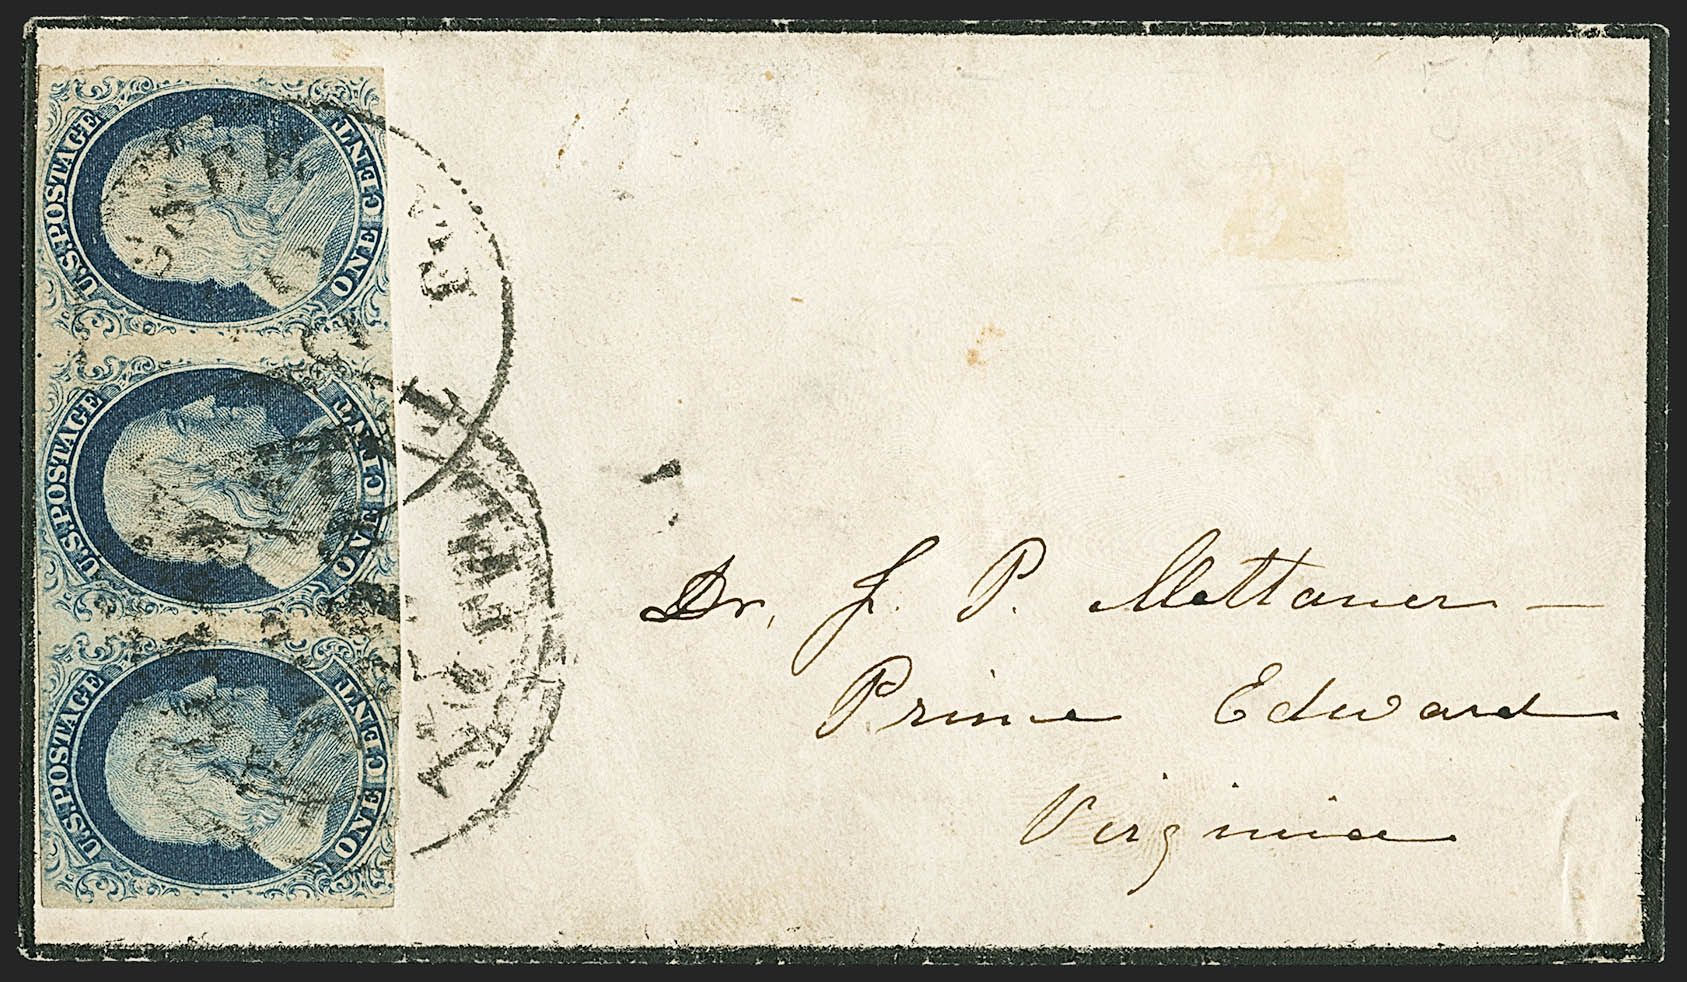 U.S. POSTAGE
ONE CENT
U.S. POSTAGE
ONE CENT
U.S. POSTAGE
ONE CENT
Dr. J. P. Mettauer
Prince Edward
Virginia